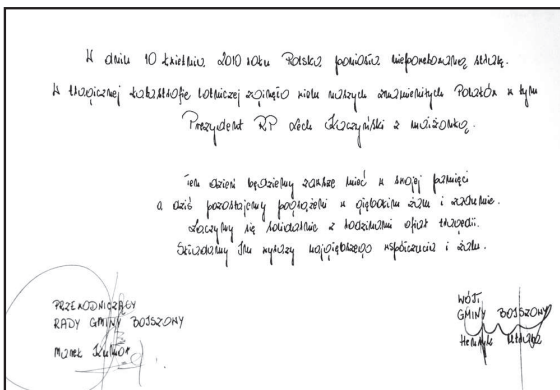 W dniu 10 kwietnia 2010 roku Polska poniosła niepowetowaną stratę.
W tragicznej katastrofie lotniczej zginęło wielu naszych znamienitych Polaków w tym
Prezydent RP Lech Kaczyński z małżonką.
Ten dzień będziemy zawsze mieć w swojej pamięci
a dziś pozostajemy pogrążeni w głębokim żalu i zadumie.
Łączymy się solidarnie z rodzinami ofiar tragedii.
Składamy Im wyrazy najgłębszego współczucia i żalu.
PRZEWODNICZĄCY
RADY GMINY BOJSZOWY
Marek Kumor
WÓJT
GMINY BOJSZOWY
Henryk Utrata